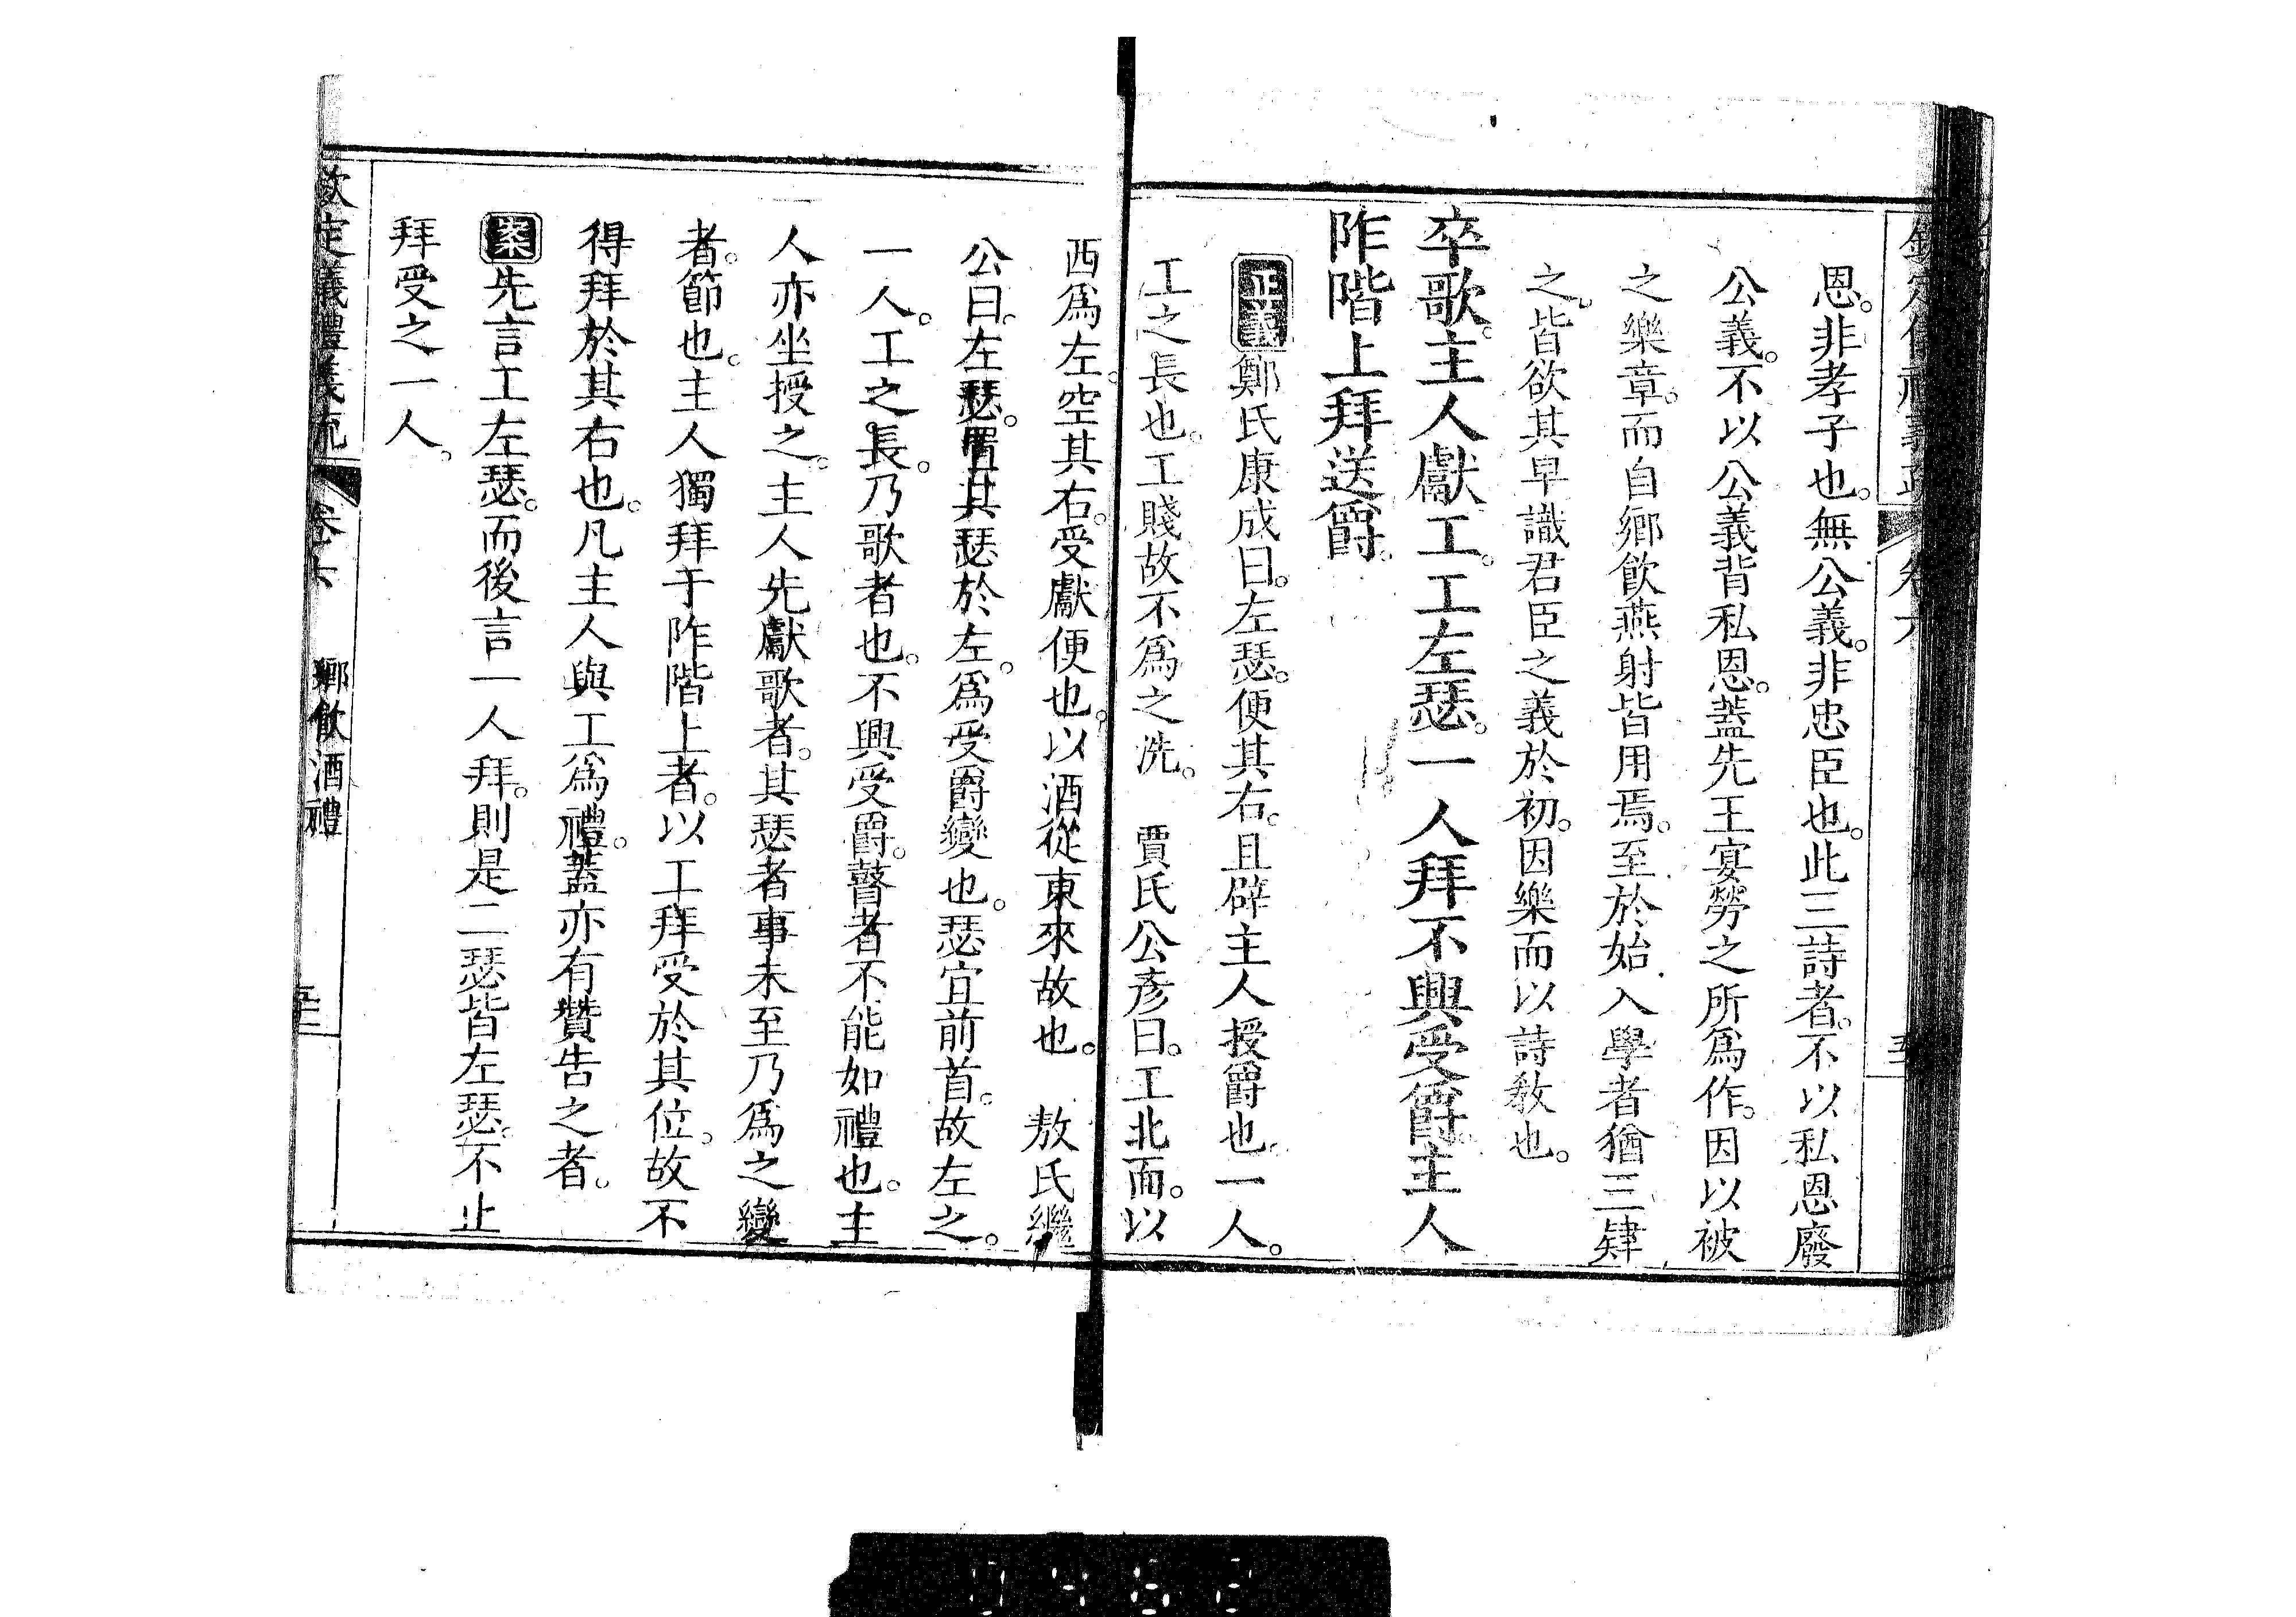 恩。非孝子也。無公義。非忠臣也。此三詩者。不以私恩廢
公義。不以公義背私恩。蓋先王宴勞之所爲作。因以被
之樂章。而自鄉飲燕射皆用焉。至於始入學者猶三肄
之。皆欲其早識君臣之義於初。因樂而以詩敎也。
卒歌。主人獻工。工左瑟。一人拜不興受爵。主人
阼階上拜送爵。
正義鄭氏康成曰。左瑟。便其右。且辟主人授爵也。一人。
工之長也。工賤故不爲之洗。 賈氏公彥曰。工北面。以
西爲左。空其右。受獻便也。以酒從東來故也。 敖氏繼
公曰。左瑟。置其瑟於左。爲受爵變也。瑟宜前首。故左之。
一人。工之長。乃歌者也。不興受爵。瞽者不能如禮也。主
人亦坐授之。主人先獻歌者。其瑟者事未至乃爲之變
者。節也。主人獨拜于阼階上者。以工拜受於其位。故不
得拜於其右也。凡主人與工爲禮。蓋亦有贊告之者。
案先言工左瑟。而後言一人拜。則是二瑟皆左瑟。不止
拜受之一人。
欽定儀禮義疏 卷六 鄉飲酒禮